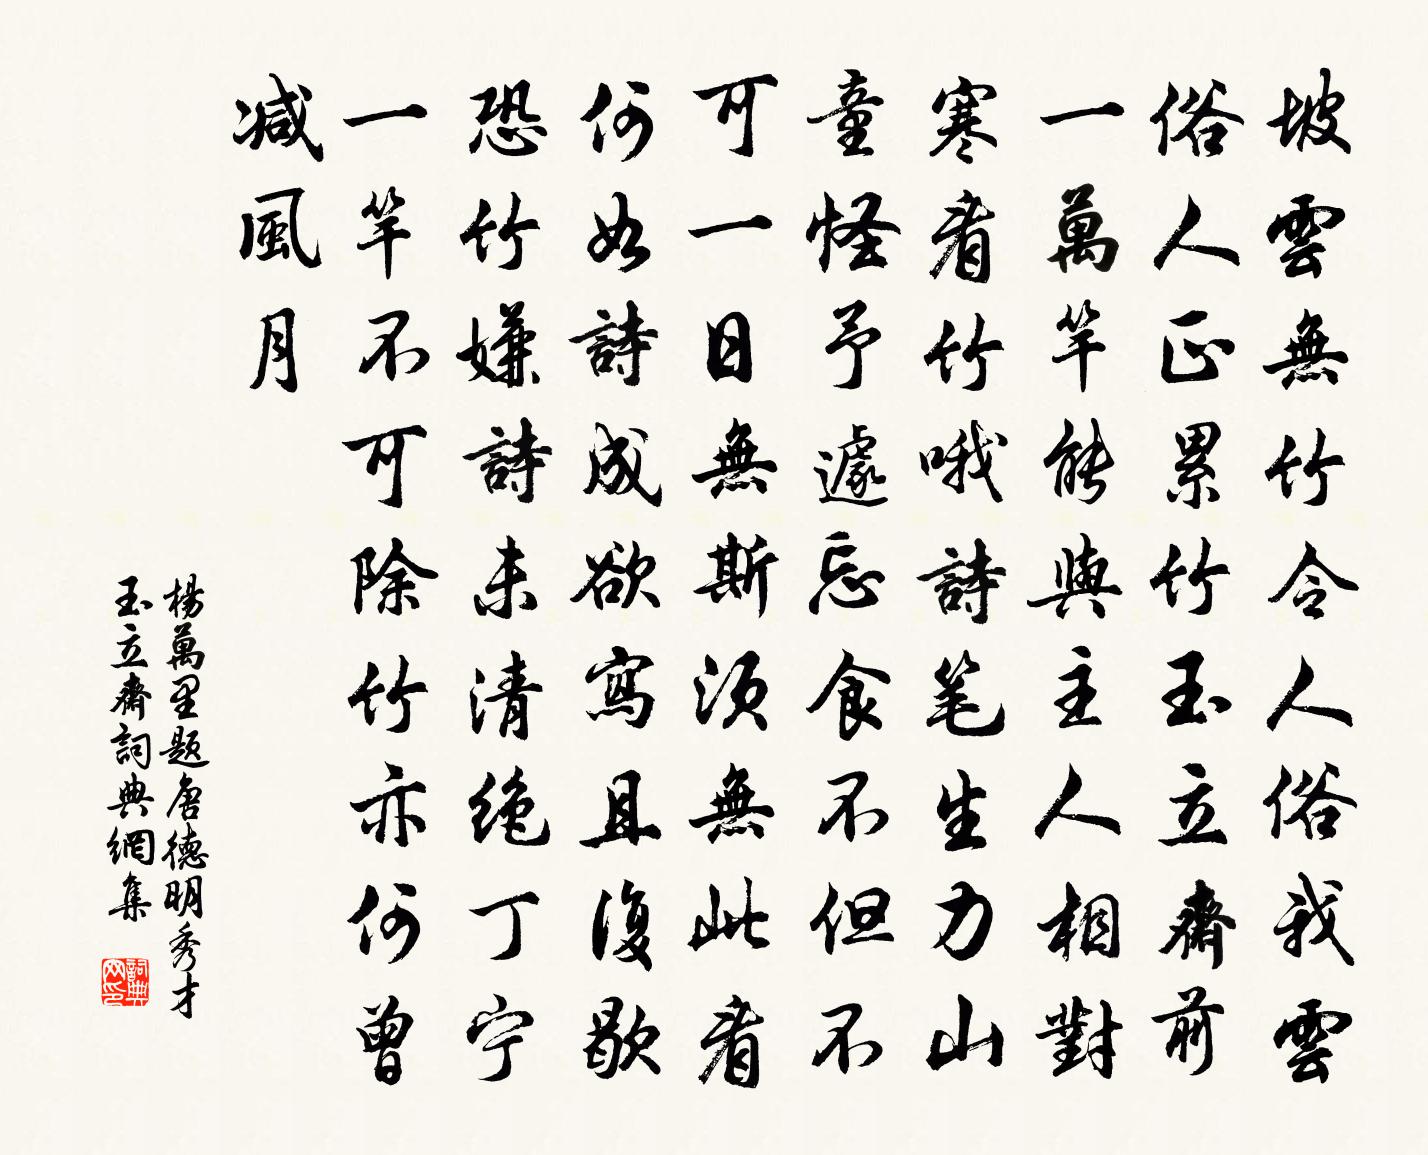 坡雲無竹令人俗我雲
俗人正累竹玉立齋前
一萬竿能與主人相對
寒看竹哦詩笔生力山
童怪予遽忘食不但不
可一日無斯須無此看
何如詩成欲寫且復歇
恐竹嫌詩未清绝丁宁
一竿不可除竹亦何曾
减風月
楊萬里题唐德明秀才
玉立齋詞典網集
詞典
网印